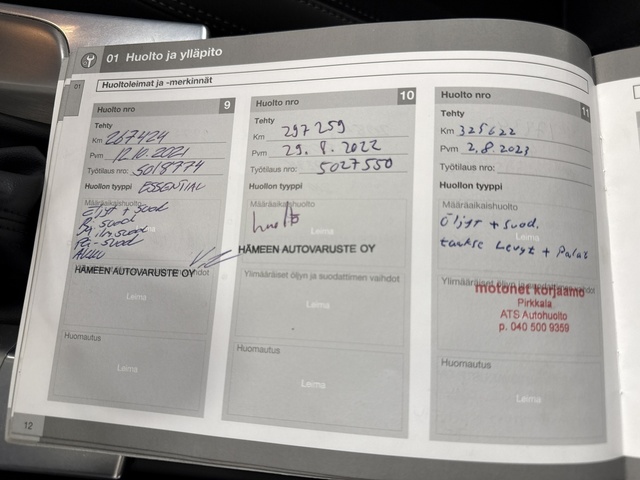 01 Huolto ja ylläpito
01
Huoltoleimat ja -merkinnät
Huolto nro 9
Tehty
Km 267424
Pvm 12.10.2021
Työtilaus nro: 5018774
Huollon tyyppi ESSENTIAL
Määräaikaishuolto
Öljyt + suod
Ri-suod
Ilm.suod
Pa-suod
AKKU
HÄMEEN AUTOVARUSTE OY
Leima
Huomautus
Leima
Huolto nro 10
Tehty
Km 297259
Pvm 29.8.2022
Työtilaus nro: 5027550
Huollon tyyppi
Määräaikaishuolto
huolto
HÄMEEN AUTOVARUSTE OY
Ylimääräiset öljyn ja suodattimen vaihdot
Leima
Huomautus
Leima
Huolto nro 11
Tehty
Km 325622
Pvm 2.8.2023
Työtilaus nro:
Huollon tyyppi
Määräaikaishuolto
Leima
Öljyt + suod.
takse Levyt + Palat
Ylimääräiset öljyn ja suodattimen vaihdot
motonet korjaamo
Pirkkala
ATS Autohuolto
p. 040 500 9359
Huomautus
Leima
12